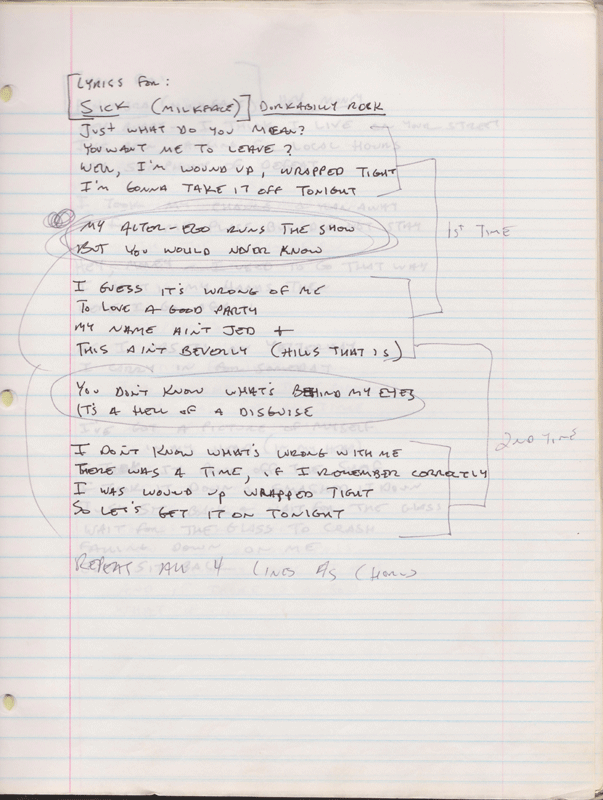 LYRICS FOR:
SICK (MILKFACE) DORKABILLY ROCK
JUST WHAT DO YOU MEAN?
YOU WANT ME TO LEAVE?
WELL, I'M WOUND UP, WRAPPED TIGHT
I'M GONNA TAKE IT OFF TONIGHT
MY ALTER-EGO RUNS THE SHOW
BUT YOU WOULD NEVER KNOW
1ST TIME
I GUESS IT'S WRONG OF ME
TO LOVE A GOOD PARTY
MY NAME AIN'T JED +
THIS AIN'T BEVERLY (HILLS THAT IS)
YOU DON'T KNOW WHAT'S BEHIND MY EYES
IT'S A HELL OF A DISGUISE
2ND TIME
I DON'T KNOW WHAT'S WRONG WITH ME
THERE WAS A TIME, IF I REMEMBER CORRECTLY
I WAS WOUND UP WRAPPED TIGHT
SO LET'S GET IT ON TONIGHT
REPEAT ALL 4 LINES AS CHORUS
WAIT FOR THE GLASS TO CRASH
FALLING DOWN ON ME